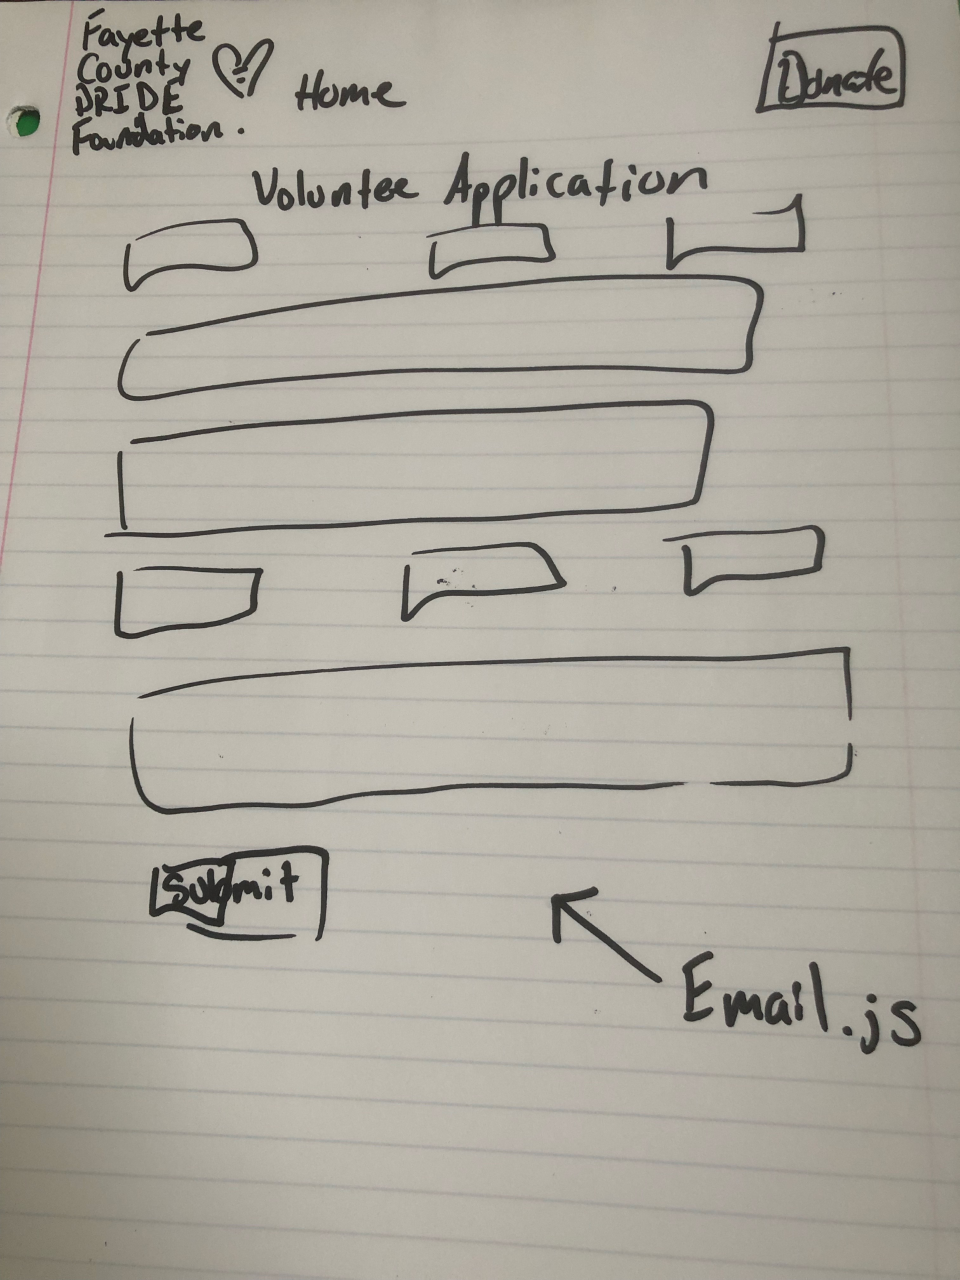 Fayette
County
DRIDE
Foundation.
Home
Donate
Voluntee Application
Submit
Email.js